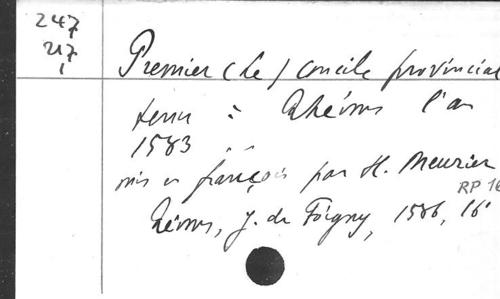 247
217
1
Premier (Le) concile provincial
tenu à Rheims l'an
1583 . .
mis en françois par H. Meurier
RP 16
Reims, J. de Foigny, 1586, 16°